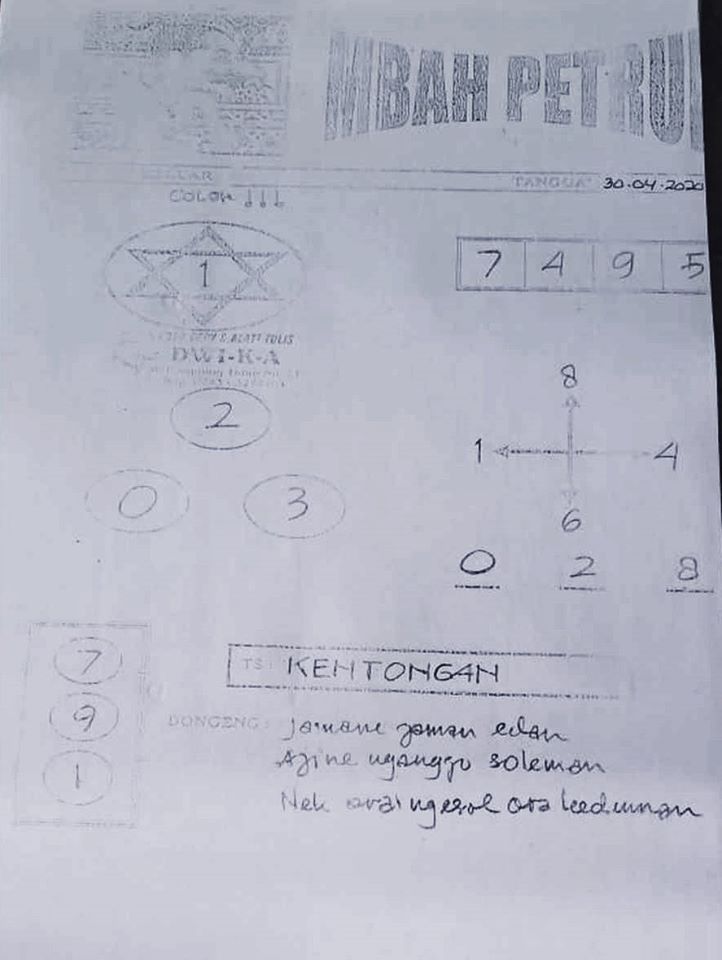 MBAH PETRU
TANGGAL 30.04.2020
COLOK
1
7 4 9 5
DWI-K-A
8
2
1 4
0 3
6
0 2 8
7
TS: KENTONGAN
9
DONGENG: jamane jaman edan
Ajine nganggo soleman
1
Nek ora ngesol ora keduman